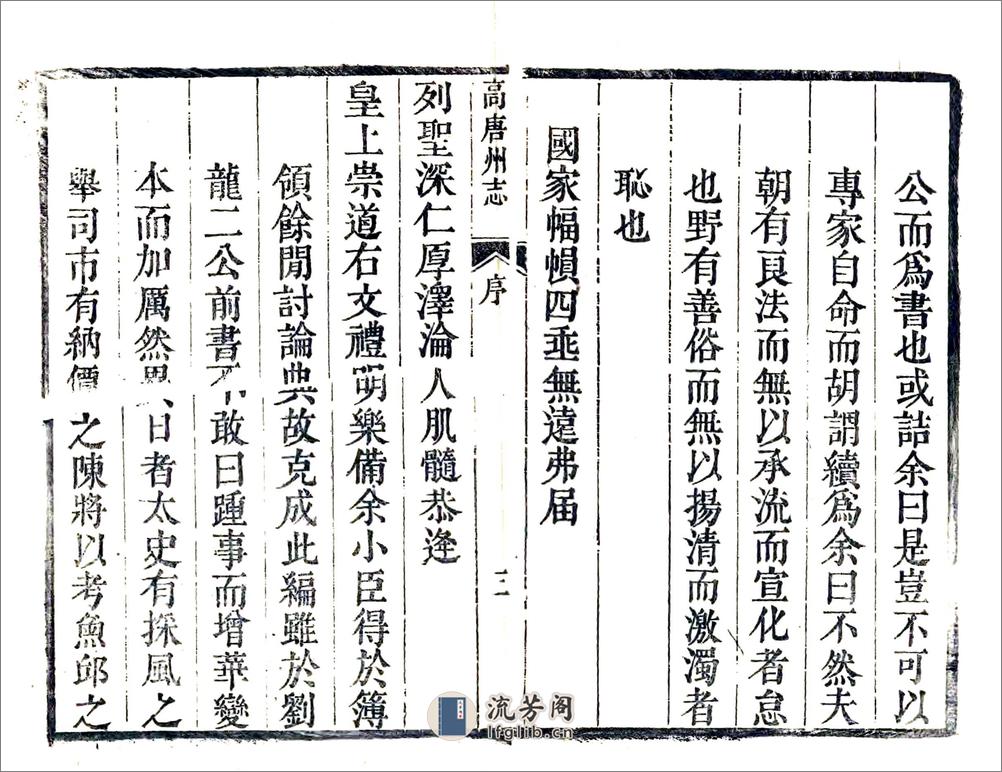 公而爲書也或詰余曰是豈不可以
專家自命而胡謂續爲余曰不然夫
朝有良法而無以承流而宣化者怠
也野有善俗而無以揚清而激濁者
恥也
國家幅幀四乖無遠弗届
高唐州志 序 三
列聖深仁厚澤淪人肌髓恭逢
皇上崇道右文禮明樂備余小臣得於簿
領餘閒討論典故克成此編雖於劉
龍二公前書不敢曰踵事而增華變
本而加厲然異日者太史有採風之
舉司市有納價之陳將以考魚邱之
流芳阁
lfglib.cn